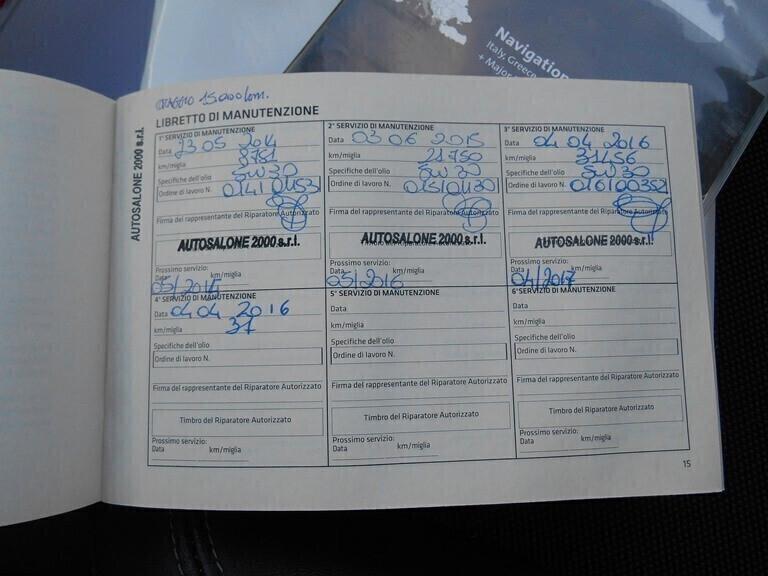 Navigation
Italy, Greece
+ Major
15000 km.
LIBRETTO DI MANUTENZIONE
AUTOSALONE 2000 s.r.l.
1° SERVIZIO DI MANUTENZIONE
Data 23 05 2014
km/miglia 9751
Specifiche dell'olio 5W30
Ordine di lavoro N.
Firma del rappresentante del Riparatore Autorizzato
AUTOSALONE 2000 s.r.l.
Prossimo servizio:
Data km/miglia
05/2015
2° SERVIZIO DI MANUTENZIONE
Data 03 06 2015
km/miglia 21750
Specifiche dell'olio 5W30
Ordine di lavoro N. 015/01130
Firma del rappresentante del Riparatore Autorizzato
AUTOSALONE 2000 s.r.l.
Prossimo servizio:
Data km/miglia
05/2016
3° SERVIZIO DI MANUTENZIONE
Data 04 04 2016
km/miglia 31456
Specifiche dell'olio 5W30
Ordine di lavoro N. 016/00352
Firma del rappresentante del Riparatore Autorizzato
AUTOSALONE 2000 s.r.l.
Prossimo servizio:
Data km/miglia
04/2017
4° SERVIZIO DI MANUTENZIONE
Data 04 04 2016
km/miglia 31
Specifiche dell'olio
Ordine di lavoro N.
Firma del rappresentante del Riparatore Autorizzato
Timbro del Riparatore Autorizzato
Prossimo servizio:
Data km/miglia
5° SERVIZIO DI MANUTENZIONE
Data
km/miglia
Specifiche dell'olio
Ordine di lavoro N.
Firma del rappresentante del Riparatore Autorizzato
Timbro del Riparatore Autorizzato
Prossimo servizio:
Data km/miglia
6° SERVIZIO DI MANUTENZIONE
Data
km/miglia
Specifiche dell'olio
Ordine di lavoro N.
Firma del rappresentante del Riparatore Autorizzato
Timbro del Riparatore Autorizzato
Prossimo servizio:
Data km/miglia
15